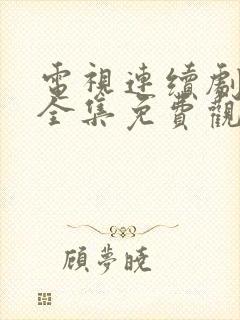 電視連續劇
全集免費觀
顧夢曉